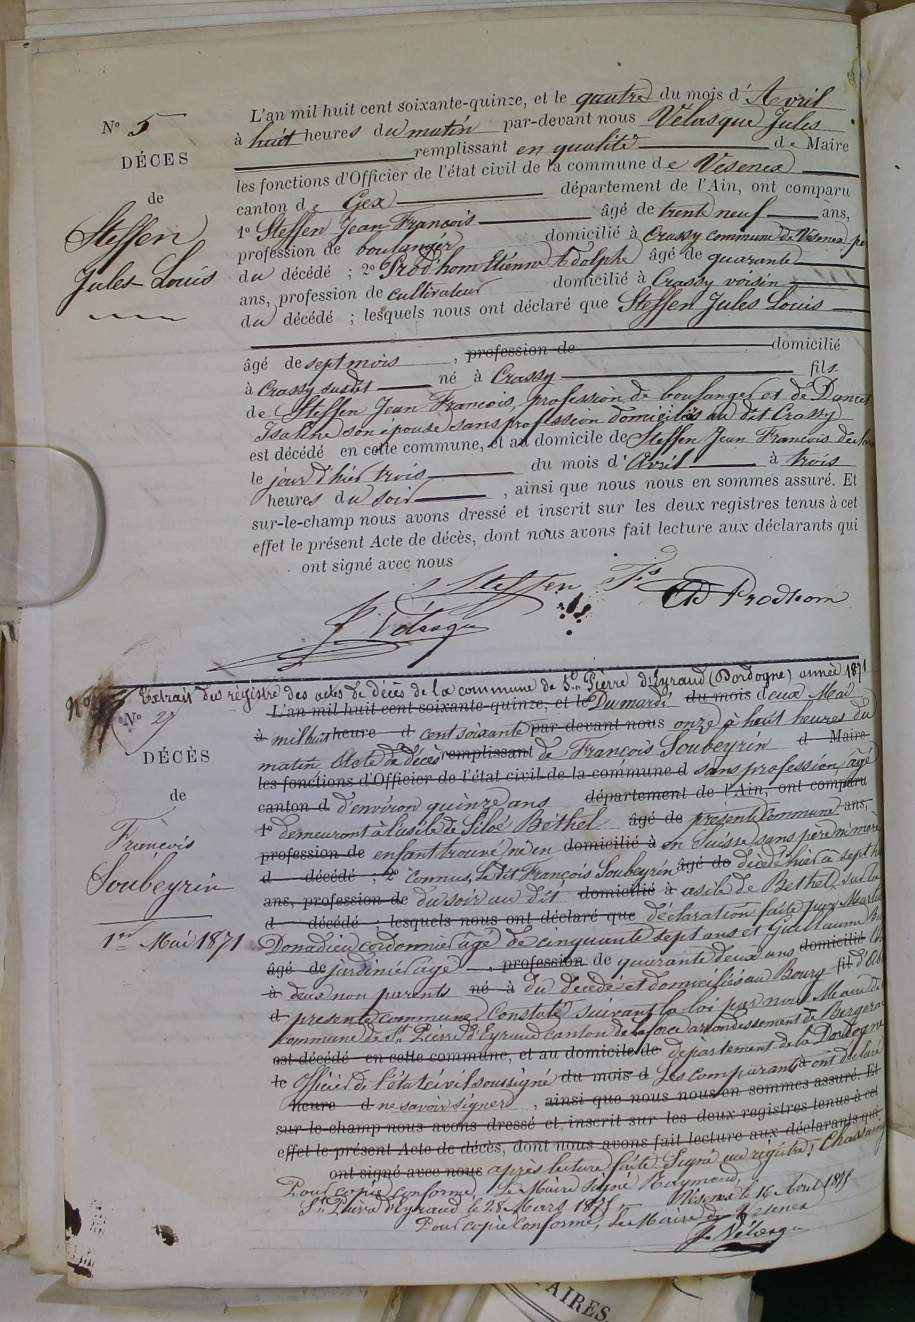 N° 5
DÉCES
de
Steffen
Jules Louis
L'an mil huit cent soixante-quinze, et le quatre du mois d'Avril
à huit heures du matin par-devant nous Vélasque Jules
remplissant en qualité de Maire
les fonctions d'Officier de l'état civil de la commune de Vésenex
canton de Gex département de l'Ain, ont comparu
1° Steffen Jean François âgé de trente neuf ans,
profession de boulanger domicilié à Crassy commune de Vésenex
du décédé ; 2° Prodhom Etienne Adolphe âgé de quarante
ans, profession de cultivateur domicilié à Crassy voisin
du décédé ; lesquels nous ont déclaré que Steffen Jules Louis
âgé de sept mois , profession de domicilié
à Crassy susdit né à Crassy fils
de Steffen Jean François, profession de boulanger et de Dancet
Isaline son épouse sans profession domiciliés au dit Crassy
est décédé en cette commune, et au domicile de Steffen Jean François
le jour d'hier trois du mois d'Avril à trois
heures du soir , ainsi que nous nous en sommes assuré. Et
sur-le-champ nous avons dressé et inscrit sur les deux registres tenus à cet
effet le présent Acte de décès, dont nous avons fait lecture aux déclarants qui
ont signé avec nous
Steffen Fs Ad Prodhom
J. Vélasque
Extrait du régistre des actes de décès de la commune de St Pierre d'Eyraud (Dordogne) année 1871
N° 2
DÉCÈS
de
François
Soubeyrin
1er Mai 1871
L'an mil huit cent soixante-quinze, et le Du mardi du mois deux Mai
à mil huit heure d cent soixante par-devant nous onze à huit heures du
matin, Acte de décès remplissant de François Soubeyrin d Maire
les fonctions d'Officier de l'état civil de la commune d sans profession, âgé
canton d d'environ quinze ans département de l'Ain, ont comparu
1° demeurant à l'asile de Siloé Béthel âgé de présente Commune ans,
profession de enfant trouvé né en domicilié à en Suisse, sans père ni mère
d décédé ; 2° connus, Le dit François Soubeyrin âgé de décédé hier à sept
ans, profession de du soir au dit domicilié à asile de Béthel, sur la
d décédé ; lesquels nous ont déclaré que déclaration faite par
Donadieu cordonnier âgé de cinquante sept ans et Guillaume
âgé de jardinier âgé , profession de quarante deux ans domicilié
à deux non parents né à du décédé et domiciliés au Bourg fil
d présente commune Constaté suivant la loi par nous Maire de
commune de St Pierre d'Eyraud canton de Laforce arrondissement de Bergerac
est décédé en cette commune, et au domicile de département de la Dordogne
le Officier de l'état civil soussigné du mois d Les comparants à ont déclaré
heure d ne savoir signer , ainsi que nous nous en sommes assuré. Et
sur-le-champ nous avons dressé et inscrit sur les deux registres tenus à cet
effet le présent Acte de décès, dont nous avons fait lecture aux déclarants qui
ont signé avec nous après lecture faite. Signé au régistre,
Pour copie conforme, Le Maire signé Raymond,
St Pierre d'Eyraud le 28 Mars 1875 Vésenex le 16 Avril 1875
Pour copie conforme, Le Maire de Vésenex
J. Vélasque
AIRES.